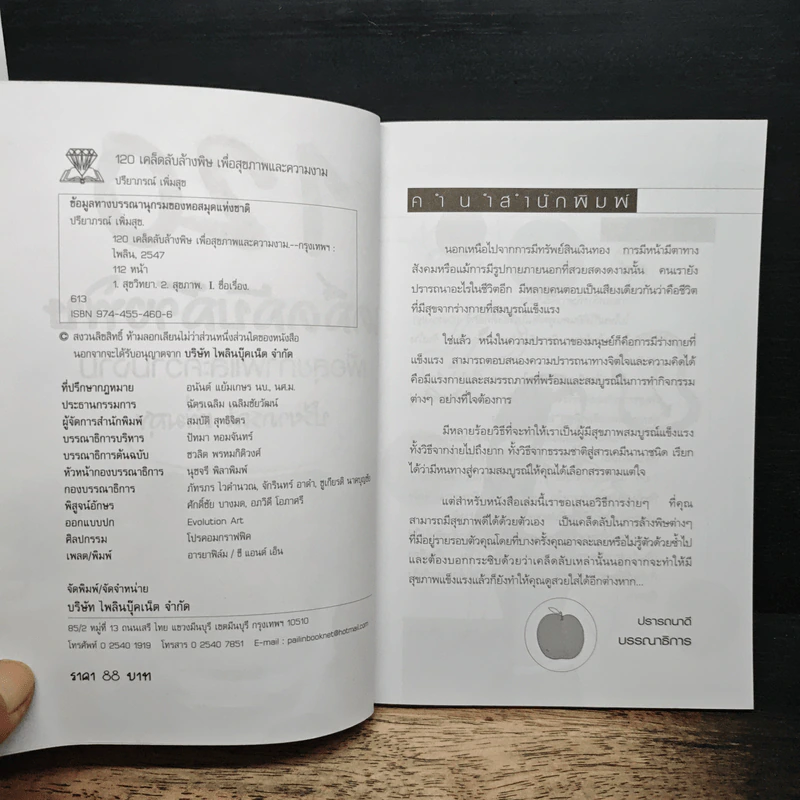 120 เคล็ดลับล้างพิษ เพื่อสุขภาพและความงาม
ปรียาภรณ์ เพิ่มสุข
ข้อมูลทางบรรณานุกรมของหอสมุดแห่งชาติ
ปรียาภรณ์ เพิ่มสุข.
120 เคล็ดลับล้างพิษ เพื่อสุขภาพและความงาม.--กรุงเทพฯ :
ไพลิน, 2547
112 หน้า
1. สุขวิทยา. 2. สุขภาพ. I. ชื่อเรื่อง.
613
ISBN 974-455-460-6
© สงวนลิขสิทธิ์ ห้ามลอกเลียนไม่ว่าส่วนหนึ่งส่วนใดของหนังสือ
นอกจากจะได้รับอนุญาตจาก บริษัท ไพลินบุ๊คเน็ต จำกัด
ที่ปรึกษากฎหมาย อนันต์ แย้มเกษร นบ., นศ.ม.
ประธานกรรมการ ฉัตรเฉลิม เฉลิมชัยวัฒน์
ผู้จัดการสำนักพิมพ์ สมบัติ สุทธิจิตร
บรรณาธิการบริหาร ปัทมา หอมจันทร์
บรรณาธิการต้นฉบับ ชวลิต พรหมกิติวงศ์
หัวหน้ากองบรรณาธิการ นุชจรี พิลาพิมพ์
กองบรรณาธิการ ภัทรภร ไวคำนวณ, จักรินทร์ อาดำ, ชูเกียรติ นาคบุญชัย
พิสูจน์อักษร ศักดิ์ชัย บางมด, อภวิดี โอภาศรี
ออกแบบปก Evolution Art
ศิลปกรรม โปรคอมกราฟฟิค
เพลต/พิมพ์ อารยาฟิล์ม / ซี แอนด์ เอ็น
จัดพิมพ์/จัดจำหน่าย
บริษัท ไพลินบุ๊คเน็ต จำกัด
85/2 หมู่ที่ 13 ถนนเสรี ไทย แขวงมีนบุรี เขตมีนบุรี กรุงเทพฯ 10510
โทรศัพท์ 0 2540 1919 โทรสาร 0 2540 7851 E-mail : pailinbooknet@hotmail.com
ราคา 88 บาท
คำนำสำนักพิมพ์
นอกเหนือไปจากการมีทรัพย์สินเงินทอง การมีหน้ามีตาทาง
สังคมหรือแม้การมีรูปกายภายนอกที่สวยสดงดงามนั้น คนเรายัง
ปรารถนาอะไรในชีวิตอีก มีหลายคนตอบเป็นเสียงเดียวกันว่าคือชีวิต
ที่มีสุขจากร่างกายที่สมบูรณ์แข็งแรง
ใช่แล้ว หนึ่งในความปรารถนาของมนุษย์ก็คือการมีร่างกายที่
แข็งแรง สามารถตอบสนองความปรารถนาทางจิตใจและความคิดได้
คือมีแรงกายและสมรรถภาพที่พร้อมและสมบูรณ์ในการทำกิจกรรม
ต่างๆ อย่างที่ใจต้องการ
มีหลายร้อยวิธีที่จะทำให้เราเป็นผู้มีสุขภาพสมบูรณ์แข็งแรง
ทั้งวิธีจากง่ายไปถึงยาก ทั้งวิธีจากธรรมชาติสู่สารเคมีนานาชนิด เรียก
ได้ว่ามีหนทางสู่ความสมบูรณ์ให้คุณได้เลือกสรรตามแต่ใจ
แต่สำหรับหนังสือเล่มนี้เราขอเสนอวิธีการง่ายๆ ที่คุณ
สามารถมีสุขภาพดีได้ด้วยตัวเอง เป็นเคล็ดลับในการล้างพิษต่างๆ
ที่มีอยู่รายรอบตัวคุณโดยที่บางครั้งคุณอาจละเลยหรือไม่รู้ตัวด้วยซ้ำไป
และต้องบอกกระซิบด้วยว่าเคล็ดลับเหล่านั้นนอกจากจะทำให้มี
สุขภาพแข็งแรงแล้วก็ยังทำให้คุณดูสวยใสได้อีกต่างหาก...
ปรารถนาดี
บรรณาธิการ